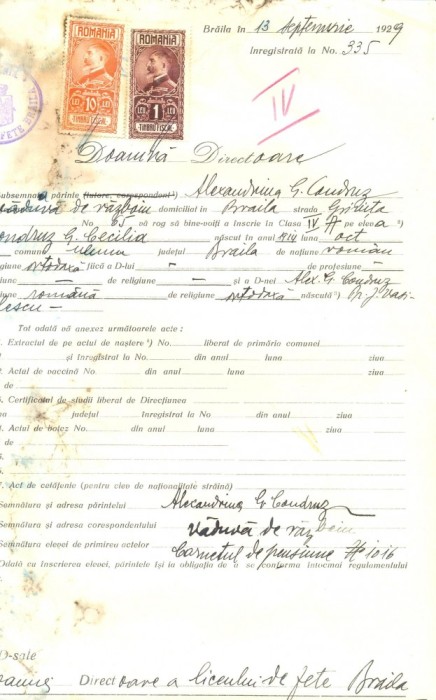 Brăila în 13 Septembrie 1929
Înregistrată la No. 335
ROMANIA
10 LEI LEI
TIMBRU FISCAL
ROMANIA
LEU 1 LEU
TIMBRU FISCAL
IV
Doamnă Directoare
subsemnata părinte (tutore, corespondent¹) Alexandrina G. Condruz
văduvă de războiu domiciliat în Braila strada Griviţa
No. 83 vă rog să bine-voiţi a înscrie în Clasa IV A pe eleva ²)
Condruz G. Cecilia născut în anul 1914 luna oct
comuna judeţul Braila de naţiune român
ligiune ortodoxă fiică a D-lui - de profesiune
de religiune — şi a D-nei Alex. G. Condruz
iune română de religiunea ortodoxă născută ³) Pr. J. Vasi-
lescu -
Tot odată vă anexez următoarele acte :
1. Extractul de pe actul de naştere ⁴) No. liberat de primăria comunei
şi înregistrat la No. din anul luna ziua
2. Actul de vaccină No. din anul luna ziua
de
3. Certificatul de studii liberat de Direcţiunea
judeţul înregistrat la No din anul ziua
Actul de botez No. din anul luna ziua
de
7. Act de cetăţenie (pentru elev de naţionalitate străină)
Semnătura şi adresa părintelui Alexandrina G Condruz
Semnătura şi adresa corespondentului Văduvă de războiu
Semnătura elevei de primirea actelor Carnetul de pensiune # 1016
Odată cu înscrierea elevei, părintele îşi ia obligaţia de a se conforma întocmai regulamentului
D-sale
Doamnei Directoare a liceului de fete Braila